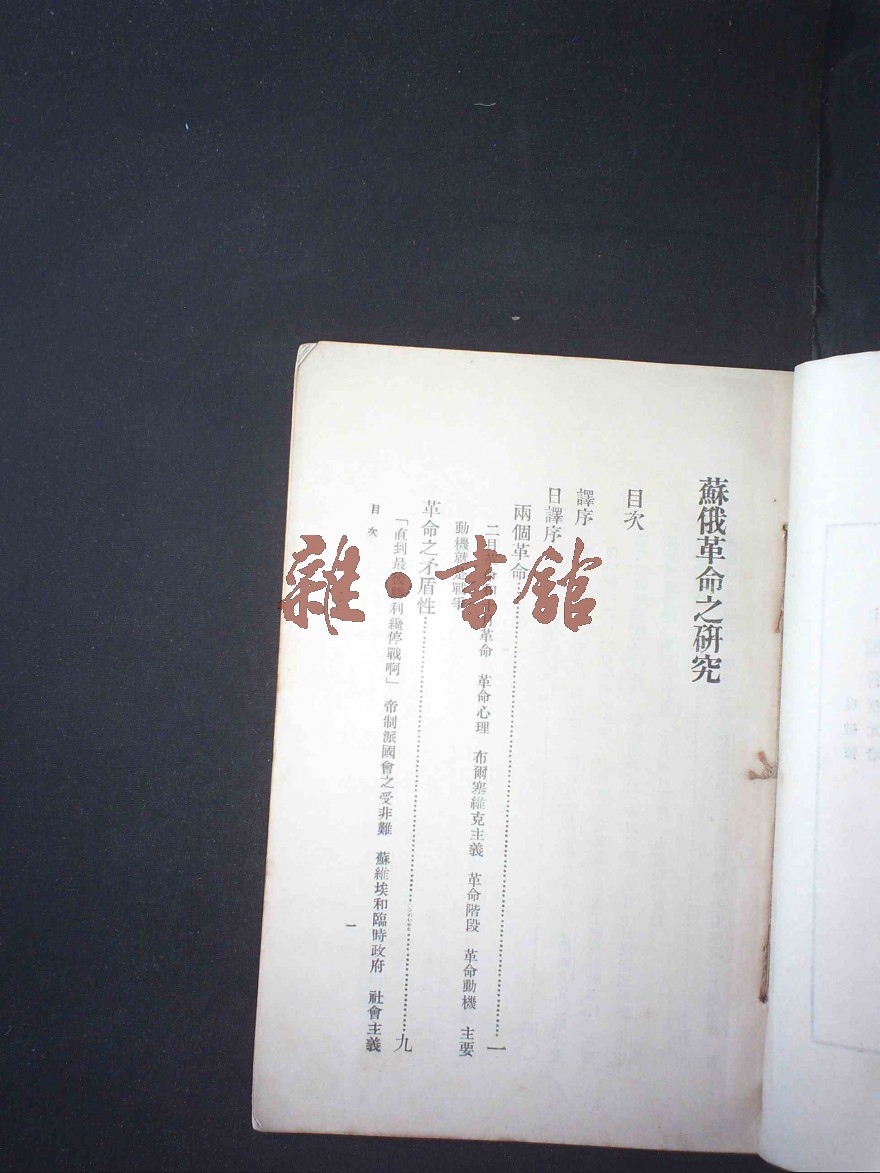 蘇俄革命之研究
目次
譯序
日譯序
兩個革命……一
二月革命 革命 革命心理 布爾塞維克主義 革命階段 革命動機 主要
動機就是戰爭
革命之矛盾性……九
「直到最後勝利纔停戰啊」 帝制派國會之受非難 蘇維埃和臨時政府 社會主義
目次
一
雜·書館